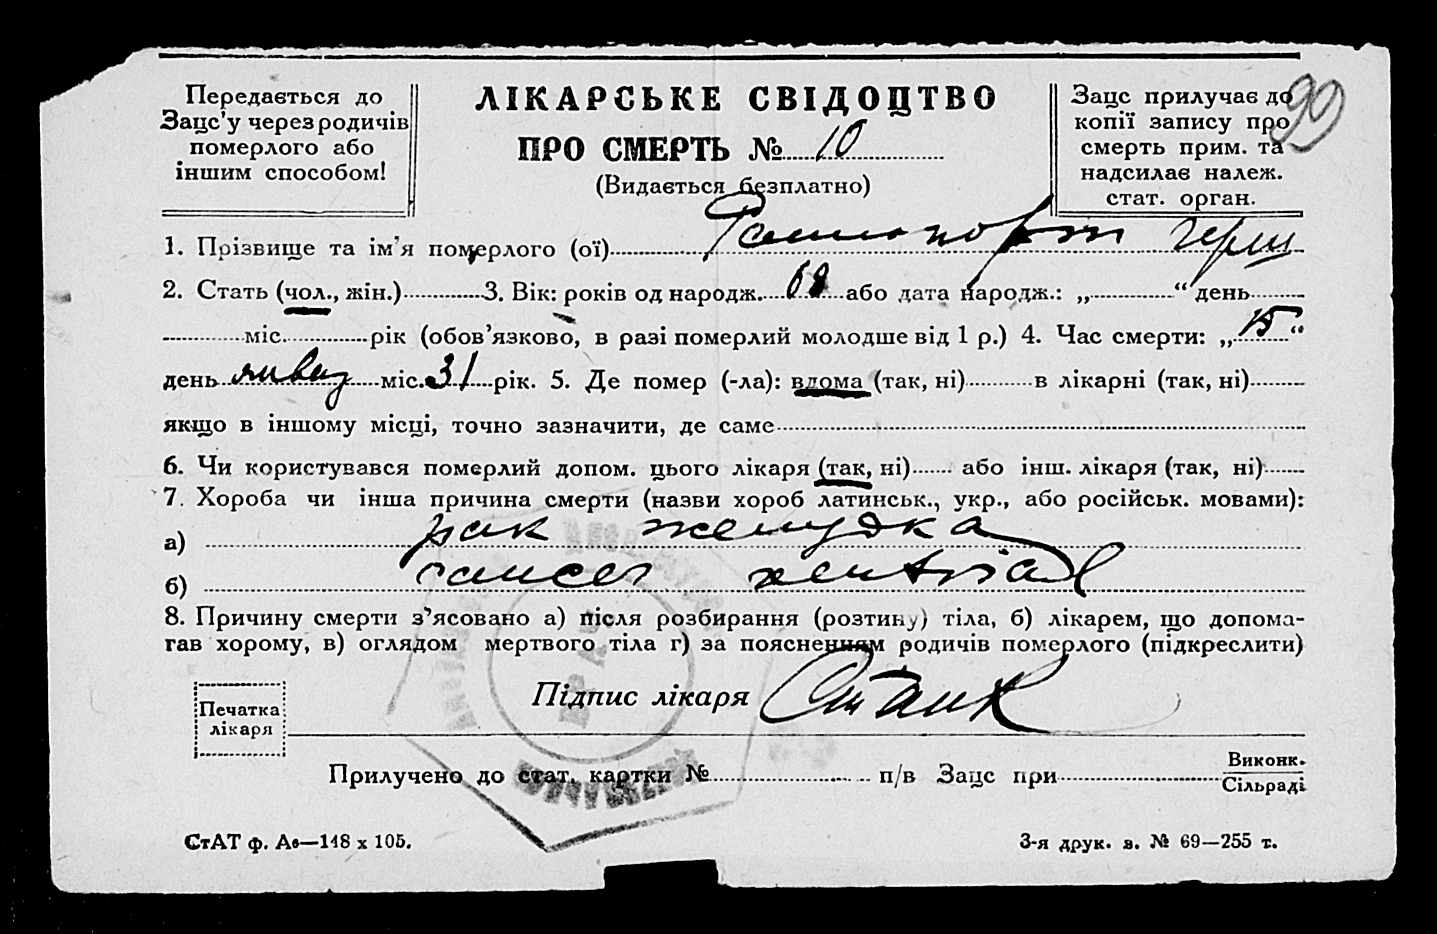 Передається до
Загс'у через родичів
померлого або
іншим способом!
ЛІКАРСЬКЕ СВІДОЦТВО
ПРО СМЕРТЬ № 10
(Видається безплатно)
Загс прилучає до
копії запису про
смерть прим. та
надсилає належ.
стат. орган.
99
1. Прізвище та ім'я померлого (ої) Раппопорт Герш
2. Стать (чол., жін.) 3. Вік: років од народж. 68 або дата народж.: „ “ день
міс. рік (обов'язково, в разі померлий молодше від 1 р.) 4. Час смерти: „15“
день января міс. 31 рік. 5. Де помер (-ла): вдома (так, ні) в лікарні (так, ні)
якщо в іншому місці, точно зазначити, де саме
6. Чи користувався померлий допом. цього лікаря (так, ні) або інш. лікаря (так, ні)
7. Хороба чи інша причина смерти (назви хороб латинськ., укр., або російськ. мовами):
а) рак желудка
б) cancer ventriculi
8. Причину смерти з'ясовано а) після розбирання (розтину) тіла, б) лікарем, що допома-
гав хорому, в) оглядом мертвого тіла г) за поясненням родичів померлого (підкреслити)
Печатка
лікаря
Підпис лікаря
Прилучено до стат. картки № п/в Загс при Виконк.
Сільраді
СтАТ ф. Ав—148 х 105.
3-я друк. з. № 69—255 т.